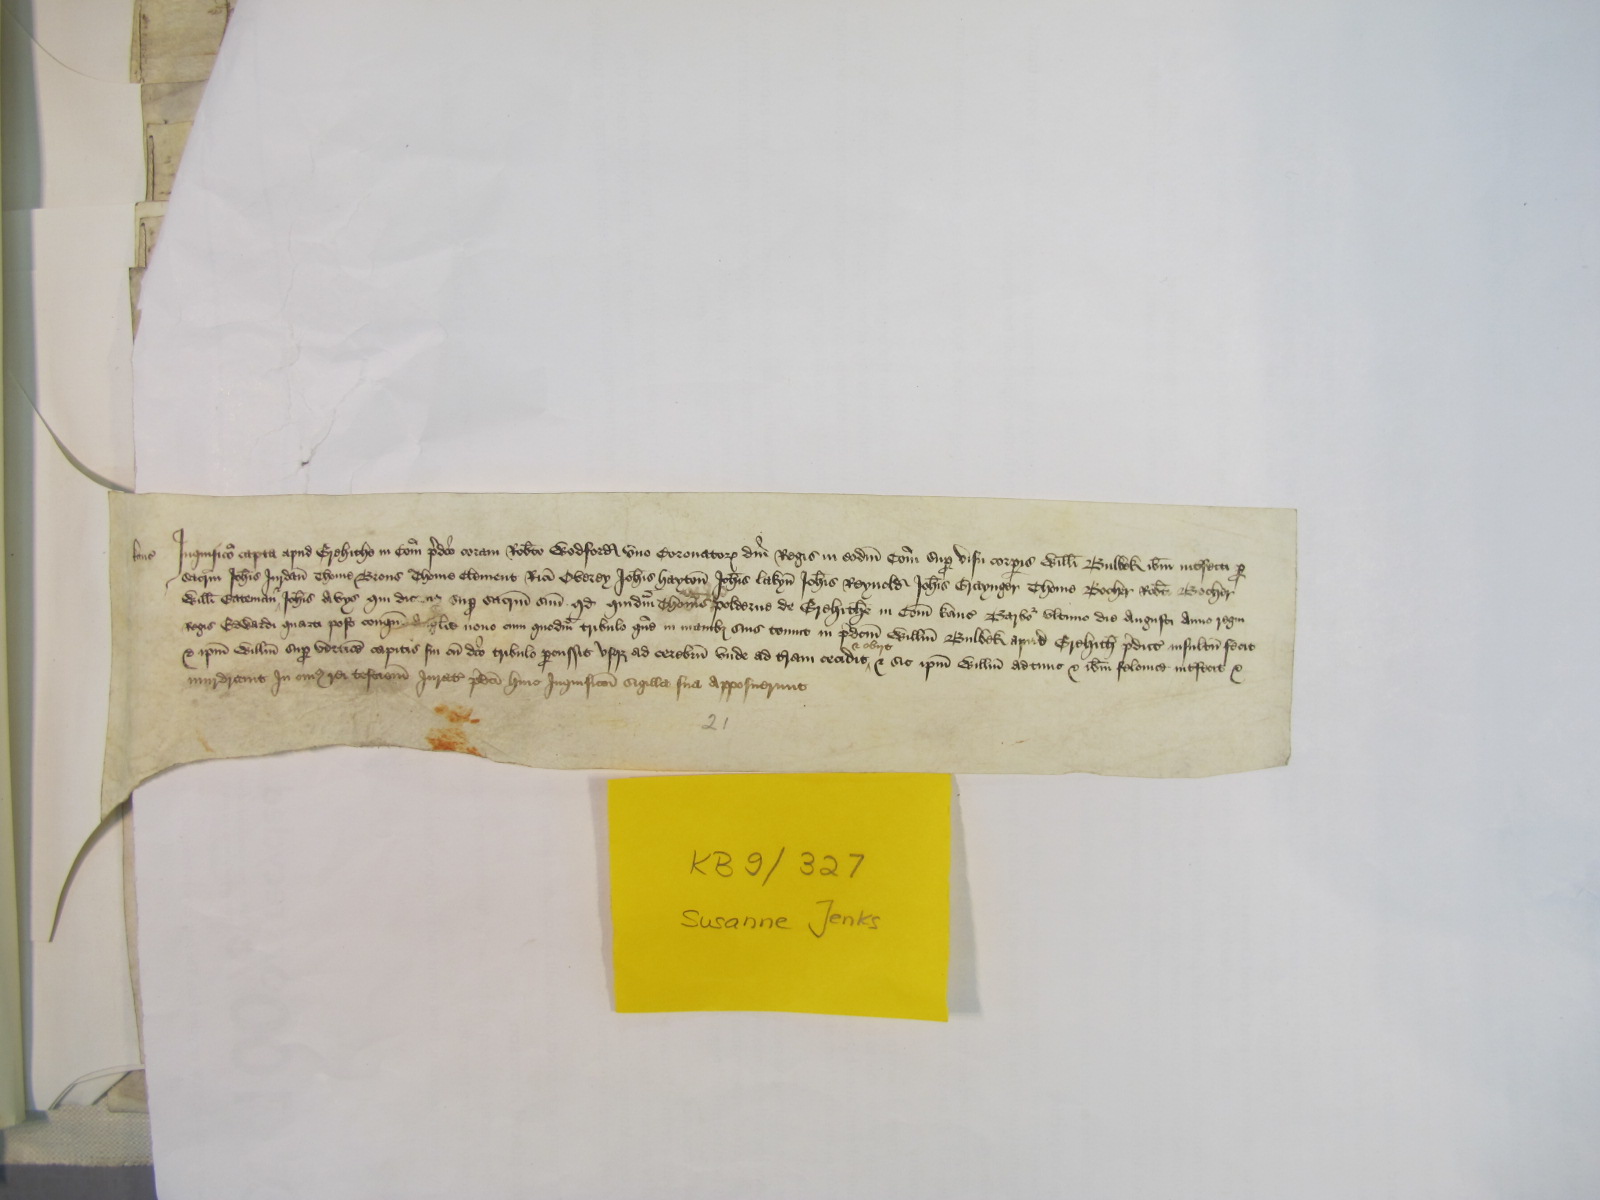 kanc Inquisico capta apud Grehithe in Com pdco coram Robto Wodford uno Coronatorz dni Regis in eodm Com sup visu corpis Willi Bulbek ibm intfecti p
sacrm Johis Jurdan Thome Brons Thome Clement Rici Overey Johis Hayton Johis Lakyn Johis Reynold Johis Graynger Thome Bocher Robt Bocher
Willi Bateman Johis Abys qui dicunt sup sacrm suu qd quidm Thomas Polderne de Grehithe in Com kanc Barbo ultimo die Augusti Anno regni
Regis Edwardi quarti post conqm Anglie nono cum quodm tribulo que in manibz suis tenuit in pdcm Willm Bulbek apud Grehith pdict insultu fecit
& ipm Willm sup vertice capitis sui cu dco tribulo pcussit usqz ad cerebru unde ad tram cecidit & obiit & sic ipm Willm adtunc & ibm felonice intfecit &
murdravit In cuiz rei testiom Jurat pdci huic Inquisicoi sigilla sua apposuerunt
21
KB 9/327
Susanne Jenks